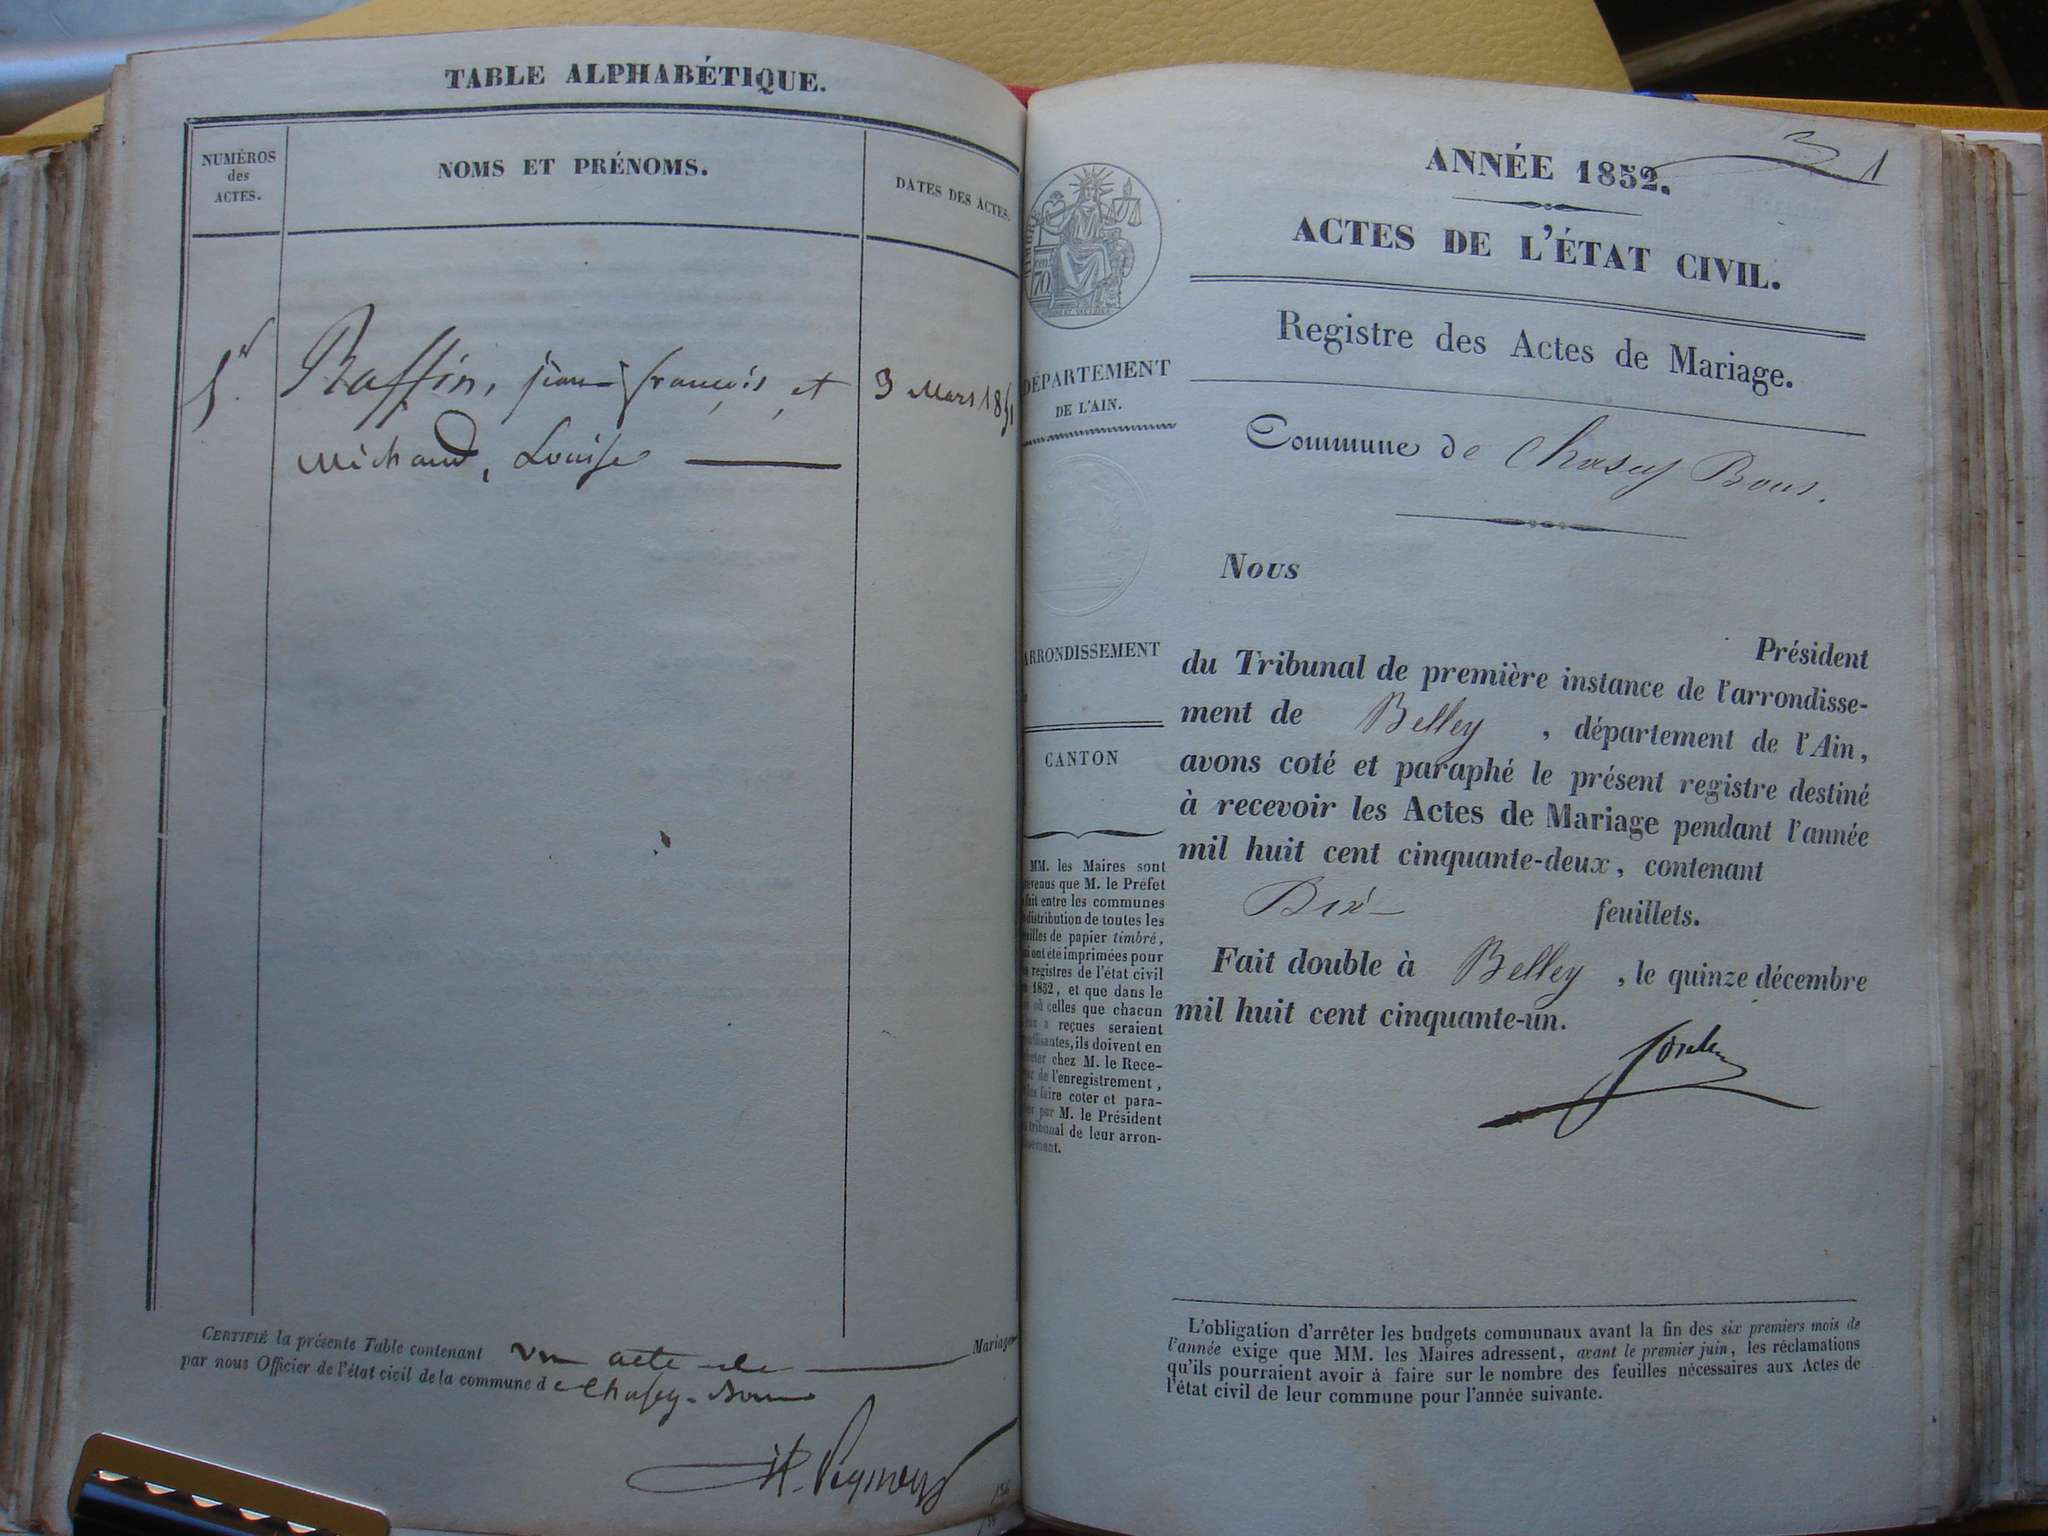 TABLE ALPHABÉTIQUE.
NUMÉROS
des
ACTES.
NOMS ET PRÉNOMS.
DATES DES ACTES.
Raffin, jean françois, et
3 Mars 1851
Michaud, Louise
CERTIFIÉ la présente Table contenant un acte de Mariage
par nous Officier de l'état civil de la commune de Chasey-Bons
ANNÉE 1852.
1
ACTES DE L'ÉTAT CIVIL.
Registre des Actes de Mariage.
Commune de Chasey Bons.
70
DÉPARTEMENT
DE L'AIN.
ARRONDISSEMENT
CANTON
MM. les Maires sont
que M. le Préfet
fait entre les communes
distribution de toutes les
de papier timbré,
ont été imprimées pour
registres de l'état civil
1852, et que dans le
où celles que chacun
a reçues seraient
ils doivent en
chez M. le Rece-
de l'enregistrement,
faire coter et para-
par M. le Président
tribunal de leur arron-
Nous
Président
du Tribunal de première instance de l'arrondisse-
ment de Belley, département de l'Ain,
avons coté et paraphé le présent registre destiné
à recevoir les Actes de Mariage pendant l'année
mil huit cent cinquante-deux, contenant
Dix feuillets.
Fait double à Belley, le quinze décembre
mil huit cent cinquante-un.
L'obligation d'arrêter les budgets communaux avant la fin des six premiers mois de
l'année exige que MM. les Maires adressent, avant le premier juin, les réclamations
qu'ils pourraient avoir à faire sur le nombre des feuilles nécessaires aux Actes de
l'état civil de leur commune pour l'année suivante.